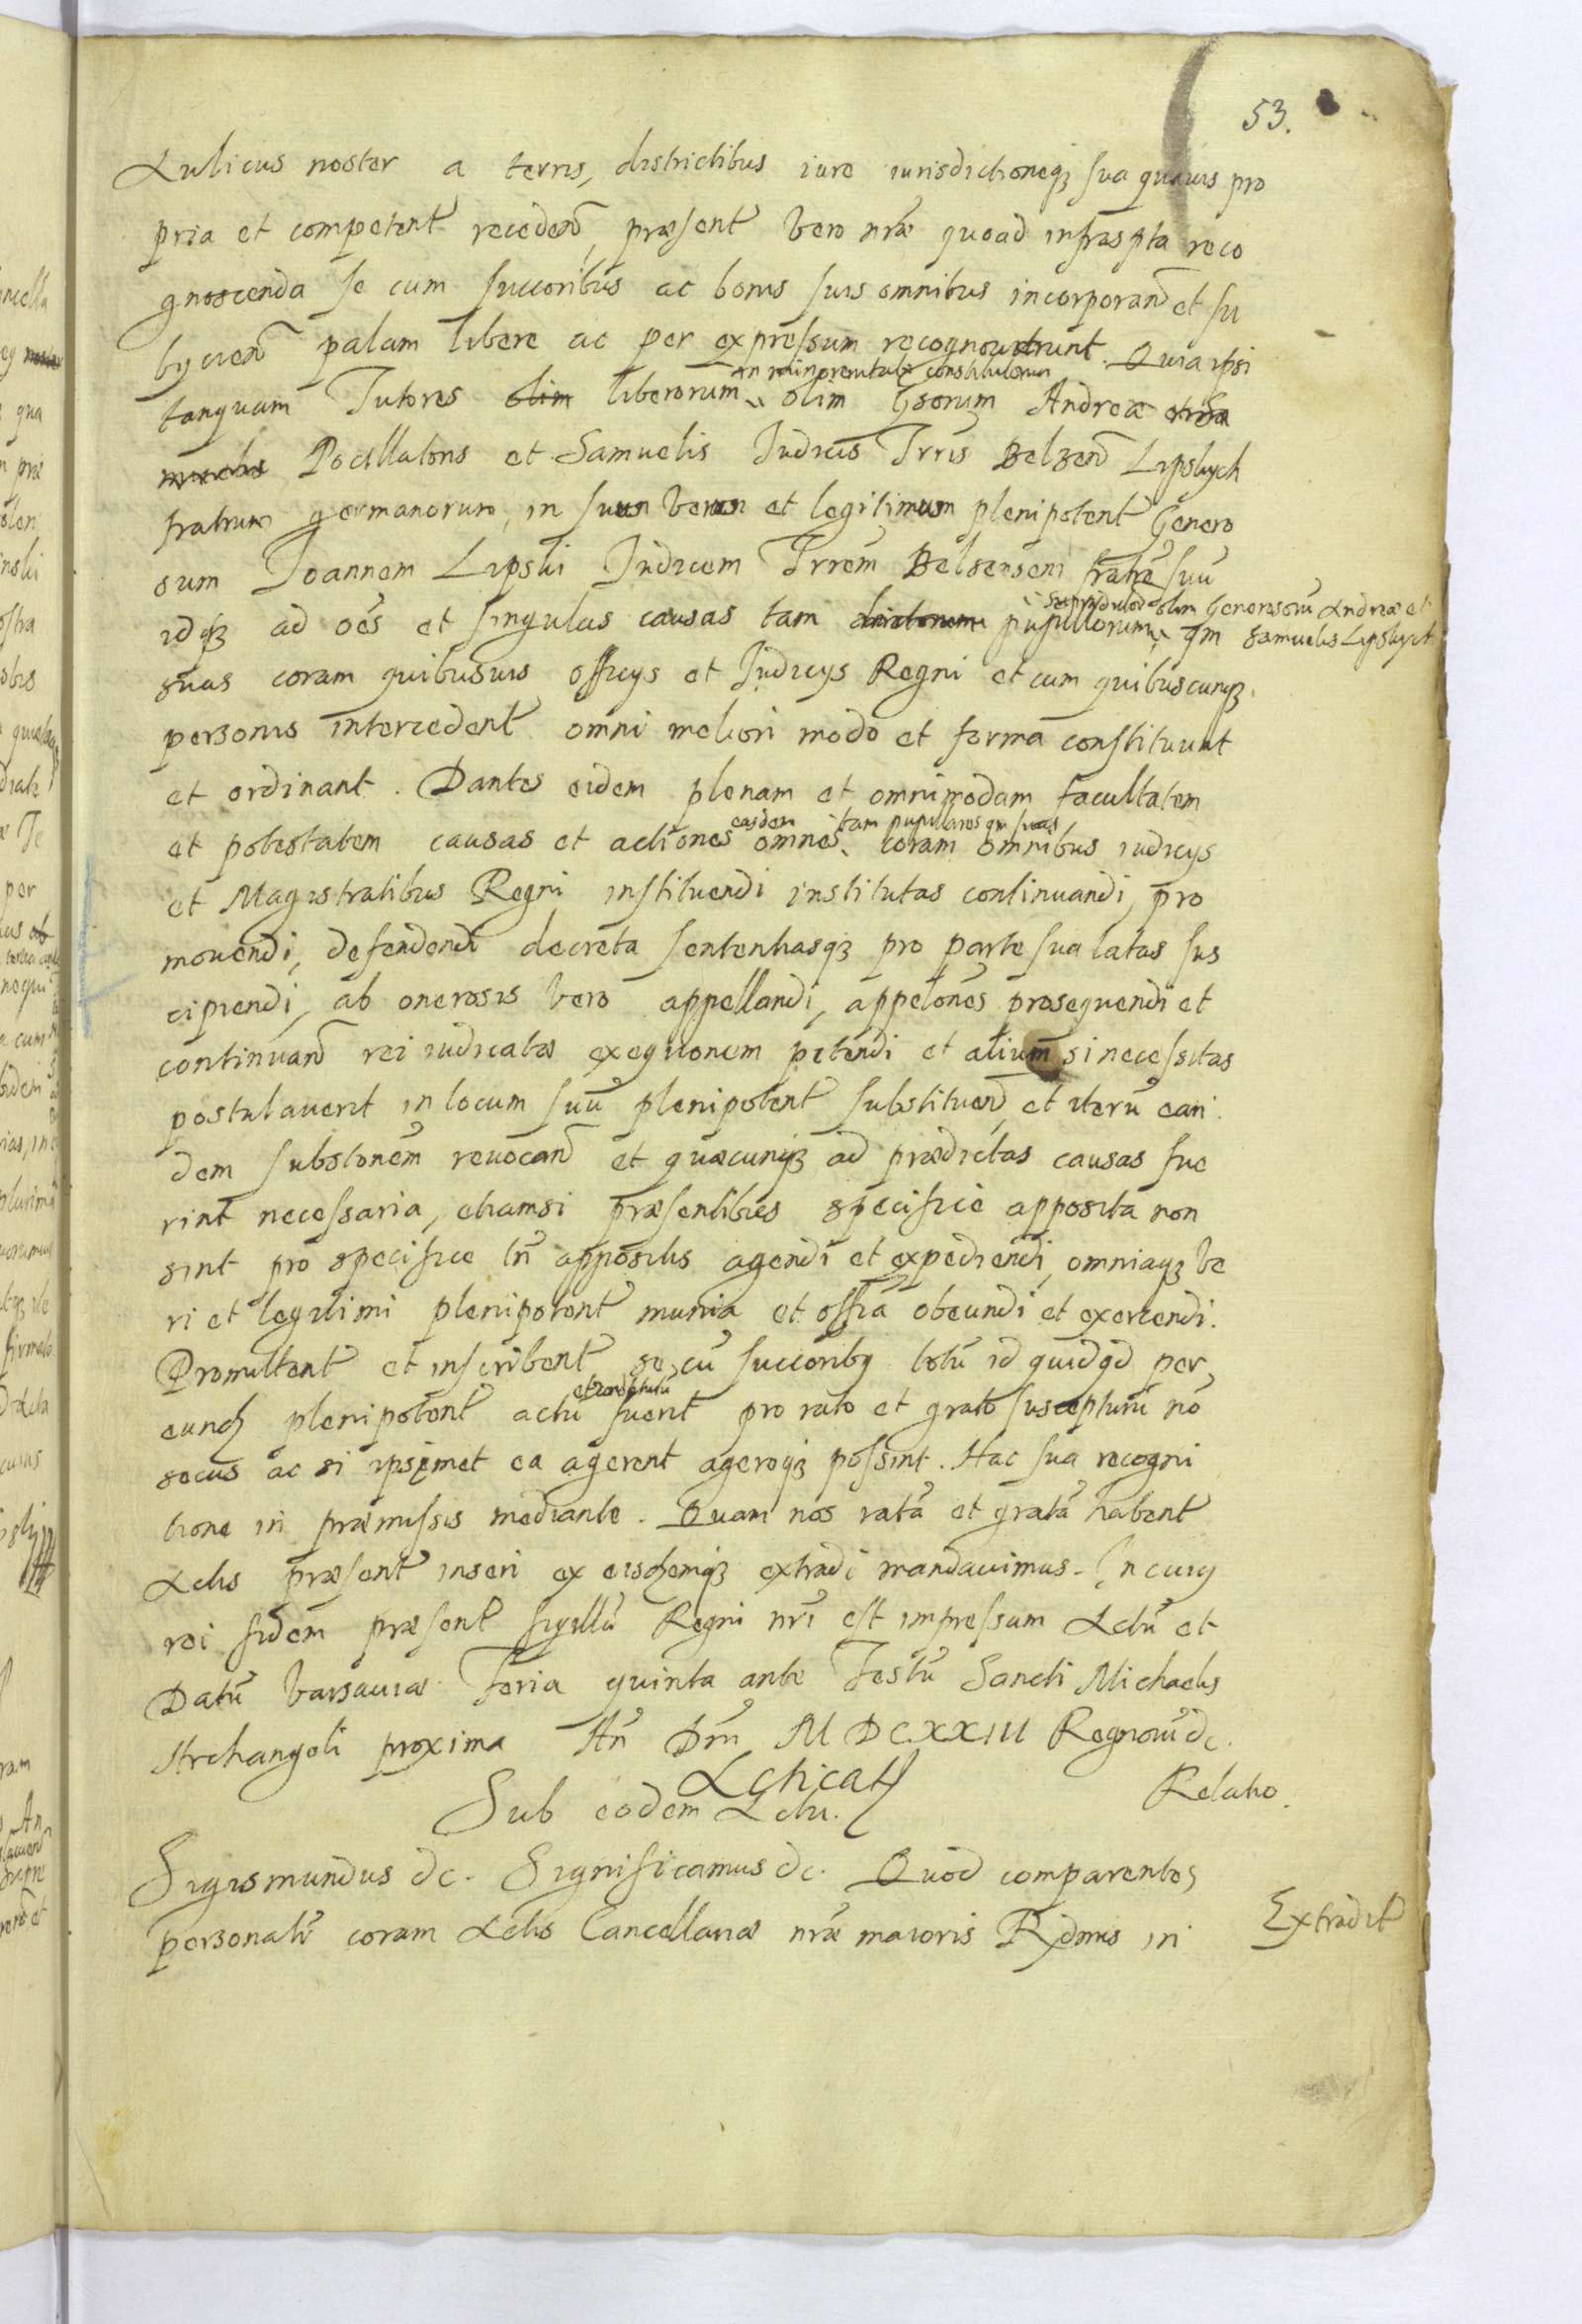 53.
Aulicus noster a terris, districtibus iure iurisdictioneq3 sua quavis pro
pria et competent recedend, præsent vero nræ quoad infrasptα reco
gnoscenda se cum succoribus ac bonis suis omnibus incorporand et su
byciend palam libere ac per expressum recognoverunt. Quia ipsi
in minorenitate constitutorum
tanquam Tutores olim liberorum olim Gsorum Andreæ
Pocillatoris et Samuelis Iudicis Trris Belzen Lipskych
fratrum germanorum, in suum verum et legitimum plenipotent Genero
sum Ioannem Lipski Iudicem Trrem Belzensem fratre suu
olim Generosoru Andreæ et
idq3 ad oes et singulas causas tam pupillorum qm Samuelis Lipskych
suas coram quibusvis officys et Iudicys Regni et cum quibuscunq3
personis intercedent omni meliori modo et forma constituunt
et ordinant. Dantes eidem plenam et omnimodam facultatem
easdem tam pupillares qm suas
et potestatem causas et actiones omnes coram omnibus iudicys
et Magistratibus Regni instituendi institutas continuandi, pro
movendi, defendendi decreta sententiasq3 pro parte sua latas sus
cipiendi, ab onerosis vero appellandi, appelones prosequendi et
continuand rei iudicatæ exequonem petendi et alium si necessitas
postulaverit in locum suu plenipotent substituend et iteru ean
dem substonem revocand et quæcunq3 ad prædictas causas fue
rint necessaria, etiamsi præsentibus specifice apposita non
sint pro specifice tn appositis agendi et expediendi, omniaq3 ve
ri et legitimi plenipotent munia et offia obeundi et exercendi.
Promittent et inscribent se cu succoriby totu id quidqd per
eund plenipotent actu fuerit pro rato et grato suscepturu no
secus ac si ipsimet ea agerent agereq3 possint. Hac sua recogni
tione in præmissis mediante. Quam nos rata et grata habent
Actis præsent inseri ex eisdemq3 extradi mandavimus. In cuiy
rei fidem præsent sigillu Regni nri est impressum Actu et
Datu Varsaviæ Feria quinta ante Festu Sancti Michaelis
Archangeli proxima An Dni MDCXXIII Regnoru dc.
Relatio.
Sub eodem Actu.
Sigismundus dc. Significamus dc. Quod comparentes
personalr coram Actis Cancellariæ nræ maioris Rdmus in
Extradit